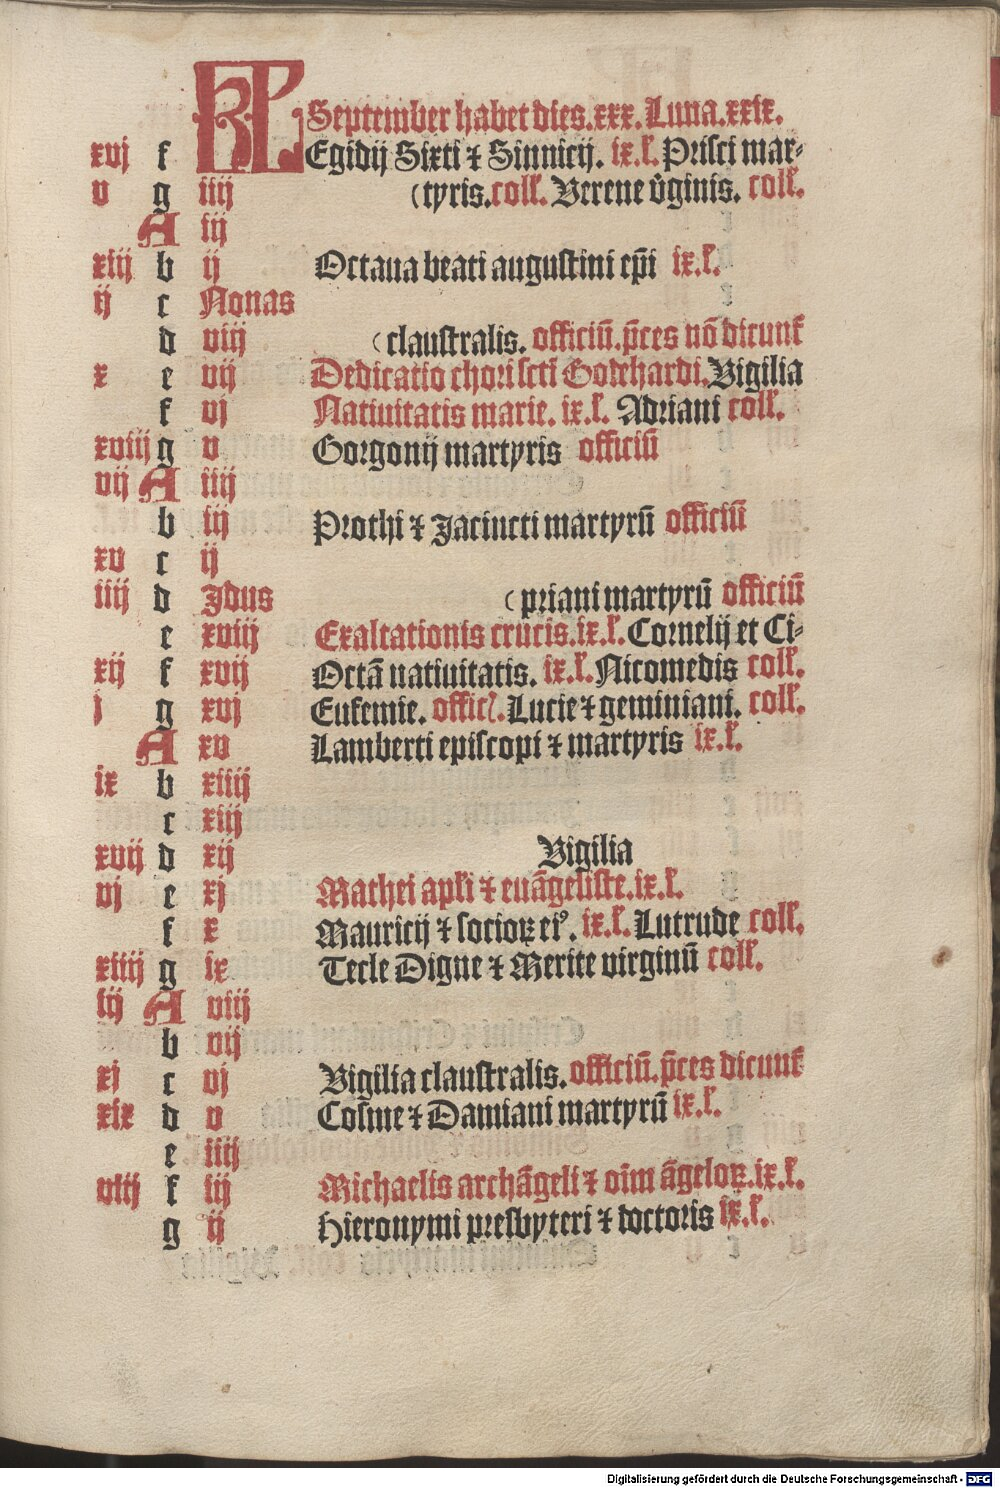 KL September habet dies.xxx.Luna.xxix.
xvj f Egidij Sixti ⁊ Sinnicij. ix.l. Prisci mar-
v g iiij (tyris.coll. Verene v̄ginis. coll.
A iij
xiij b ij Octaua beati augustini ep̄i ix.l.
ij c Nonas
d viij (claustralis. officiū.p̄ces nō dicunt̄
x e vij Dedicatio chori scti Godehardi.Vigilia
f vj Natiuitatis marie. ix.l. Adriani coll.
xviij g v Gorgonij martyris officiū
vij A iiij
b iij Prothi ⁊ Jacincti martyrū officiū
xv c ij
iiij d Jdus (priani martyrū officiū
e xviij Exaltationis crucis.ix.l.Cornelij et Ci-
xij f xvij Octā natiuitatis. ix.l.Nicomedis coll.
j g xvj Eufemie. offic̄.Lucie ⁊ geminiani. coll.
A xv Lamberti episcopi ⁊ martyris ix.l.
ix b xiiij
c xiij
xvij d xij Vigilia
vj e xj Mathei apl̄i ⁊ euāgeliste.ix.l.
f x Mauricij ⁊ socioꝝ eiꝰ. ix.l. Lutrude coll.
xiiij g ix Tecle Digne ⁊ Merite virginū coll.
iij A viij
b vij
xj c vj Vigilia claustralis.officiū.p̄ces dicunt̄
xix d v Cosme ⁊ Damiani martyrū ix.l.
e iiij
viij f iij Michaelis archāgeli ⁊ oīm āgeloꝝ.ix.l.
g ij Hieronymi presbyteri ⁊ doctoris ix.l.
Digitalisierung gefördert durch die Deutsche Forschungsgemeinschaft - DFG